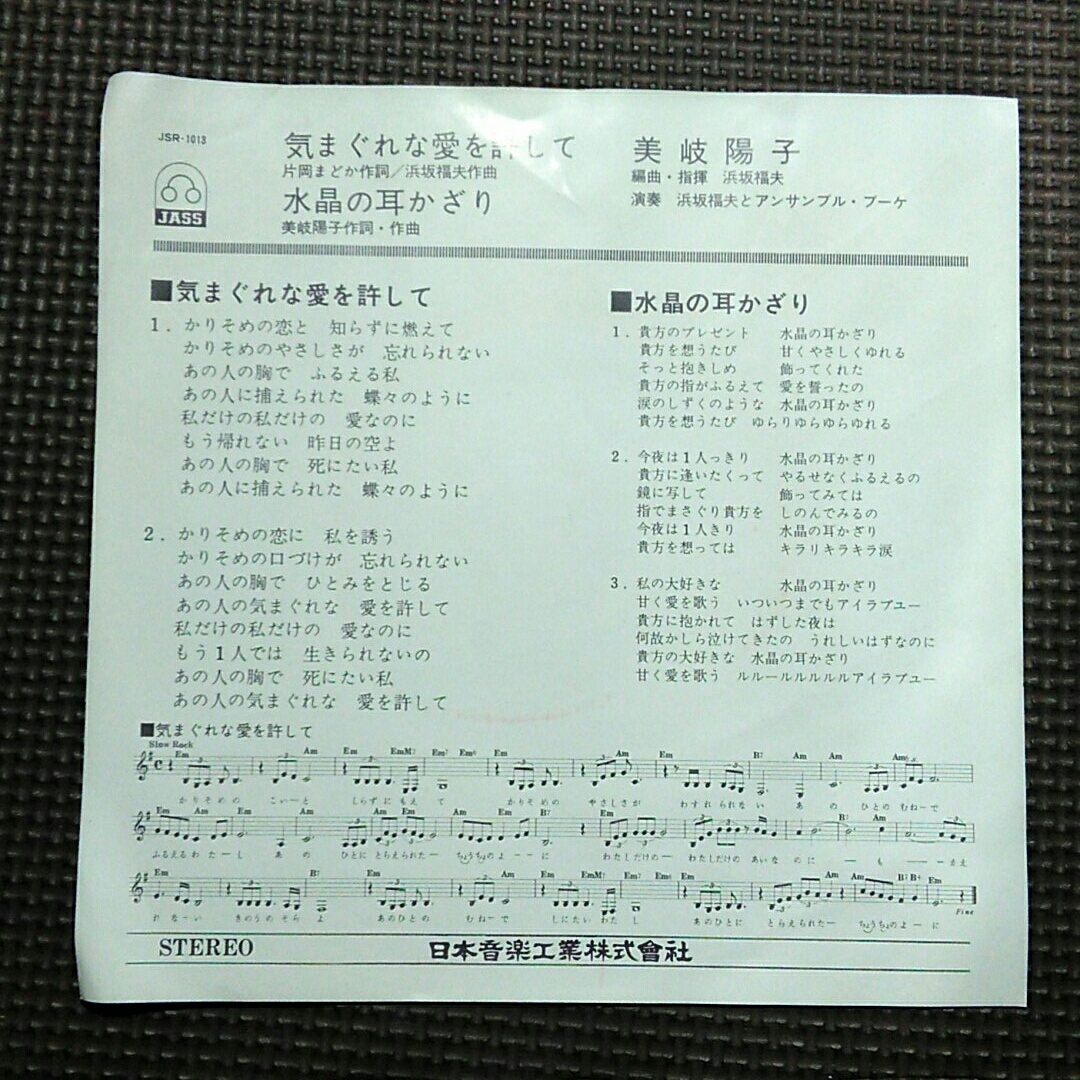 JSR-1013
JASS
気まぐれな愛を許して
片岡まどか作詞/浜坂福夫作曲
水晶の耳かざり
美岐陽子作詞・作曲
美岐陽子
編曲・指揮 浜坂福夫
演奏 浜坂福夫とアンサンブル・ブーケ
■気まぐれな愛を許して
1. かりそめの恋と 知らずに燃えて
かりそめのやさしさが 忘れられない
あの人の胸で ふるえる私
あの人に捕えられた 蝶々のように
私だけの私だけの 愛なのに
もう帰れない 昨日の空よ
あの人の胸で 死にたい私
あの人に捕えられた 蝶々のように
2. かりそめの恋に 私を誘う
かりそめの口づけが 忘れられない
あの人の胸で ひとみをとじる
あの人の気まぐれな 愛を許して
私だけの私だけの 愛なのに
もう1人では 生きられないの
あの人の胸で 死にたい私
あの人の気まぐれな 愛を許して
■水晶の耳かざり
1. 貴方のプレゼント 水晶の耳かざり
貴方を想うたび 甘くやさしくゆれる
そっと抱きしめ 飾ってくれた
貴方の指がふるえて 愛を誓ったの
涙のしずくのような 水晶の耳かざり
貴方を想うたび ゆらりゆらゆらゆれる
2. 今夜は1人っきり 水晶の耳かざり
貴方に逢いたくって やるせなくふるえるの
鏡に写して 飾ってみては
指でまさぐり貴方を しのんでみるの
今夜は1人きり 水晶の耳かざり
貴方を想っては キラリキラキラ涙
3. 私の大好きな 水晶の耳かざり
甘く愛を歌う いついつまでもアイラブユー
貴方に抱かれて はずした夜は
何故かしら泣けてきたの うれしいはずなのに
貴方の大好きな 水晶の耳かざり
甘く愛を歌う ルルールルルルルアイラブユー
■気まぐれな愛を許して
Slow Rock
Em Am Em EmM7 Em7 Em6 Em Am Em B7 Am Am Am6
かりそめの こいーと しらずにもえ て かりそめの やさしさが わすれられない あ の ひとの むねーで
Em Am Em Am Em Am Em B7 Em B7 Am
ふるえる わたーし あ の ひとに とらえられたー ちょうちょのよーーに わたしだけのー わたしだけの あいな の に ー も ー ーかえ
Em B7 Em Am Em EmM7 Em7 Em Am Em Am B7 Em
れ なーい きのうの そら よ あのひとの むねーで しにたい わた し あのひとに とらえられたー ちょうちょのよーに
Fine
STEREO
日本音楽工業株式會社